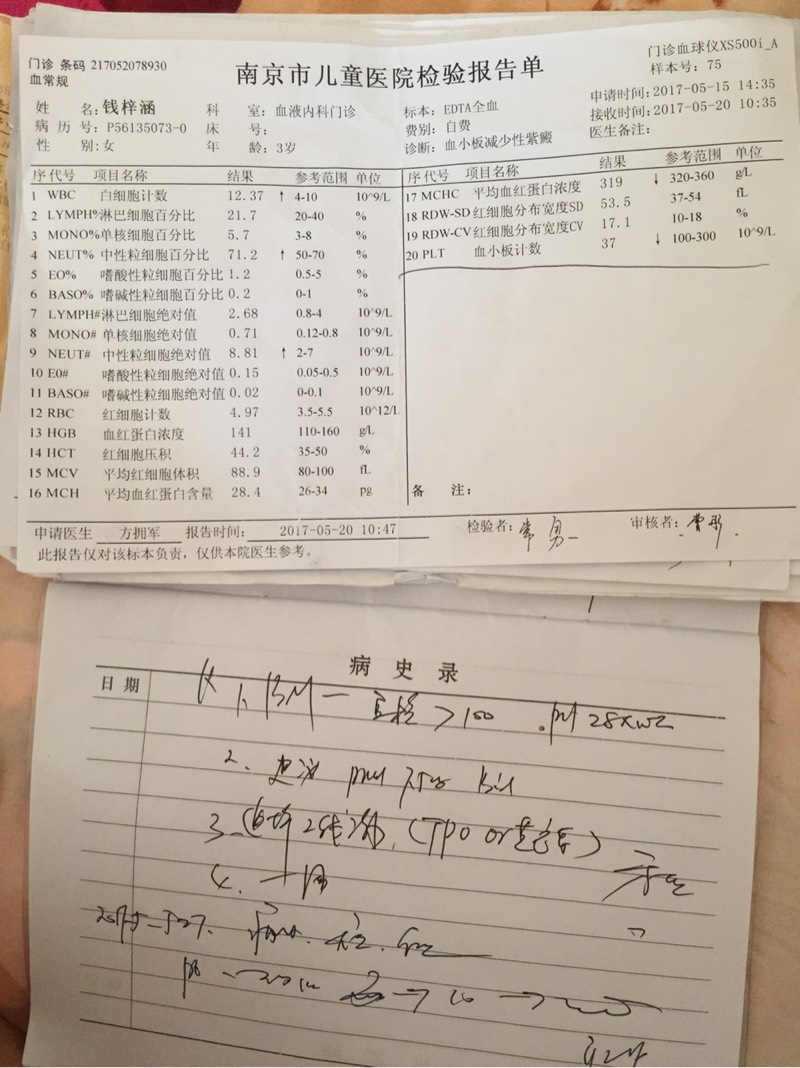 门诊 条码 217052078930
血常规
南京市儿童医院检验报告单
门诊血球仪XS500i_A
样本号：75
姓 名：钱梓涵 科 室：血液内科门诊 标本：EDTA全血 申请时间：2017-05-15 14:35
病 历 号：P56135073-0 床 号： 费别：自费 接收时间：2017-05-20 10:35
性 别：女 年 龄：3岁 诊断：血小板减少性紫癜 医生备注：
序 代号 项目名称 结果 参考范围 单位
1 WBC 白细胞计数 12.37 ↑ 4-10 10^9/L
2 LYMPH% 淋巴细胞百分比 21.7 20-40 %
3 MONO% 单核细胞百分比 5.7 3-8 %
4 NEUT% 中性粒细胞百分比 71.2 ↑ 50-70 %
5 EO% 嗜酸性粒细胞百分比 1.2 0.5-5 %
6 BASO% 嗜碱性粒细胞百分比 0.2 0-1 %
7 LYMPH# 淋巴细胞绝对值 2.68 0.8-4 10^9/L
8 MONO# 单核细胞绝对值 0.71 0.12-0.8 10^9/L
9 NEUT# 中性粒细胞绝对值 8.81 ↑ 2-7 10^9/L
10 E0# 嗜酸性粒细胞绝对值 0.15 0.05-0.5 10^9/L
11 BASO# 嗜碱性粒细胞绝对值 0.02 0-0.1 10^9/L
12 RBC 红细胞计数 4.97 3.5-5.5 10^12/L
13 HGB 血红蛋白浓度 141 110-160 g/L
14 HCT 红细胞压积 44.2 35-50 %
15 MCV 平均红细胞体积 88.9 80-100 fL
16 MCH 平均血红蛋白含量 28.4 26-34 pg
序 代号 项目名称 结果 参考范围 单位
17 MCHC 平均血红蛋白浓度 319 ↓ 320-360 g/L
18 RDW-SD 红细胞分布宽度SD 53.5 37-54 fL
19 RDW-CV 红细胞分布宽度CV 17.1 10-18 %
20 PLT 血小板计数 37 ↓ 100-300 10^9/L
备 注：
申请医生 方拥军 报告时间： 2017-05-20 10:47 检验者： 审核者：
此报告仅对该标本负责，仅供本院医生参考。
病 史 录
日 期
1. BM — 巨核 > 100
2. 建议
3. (TPO or
4.